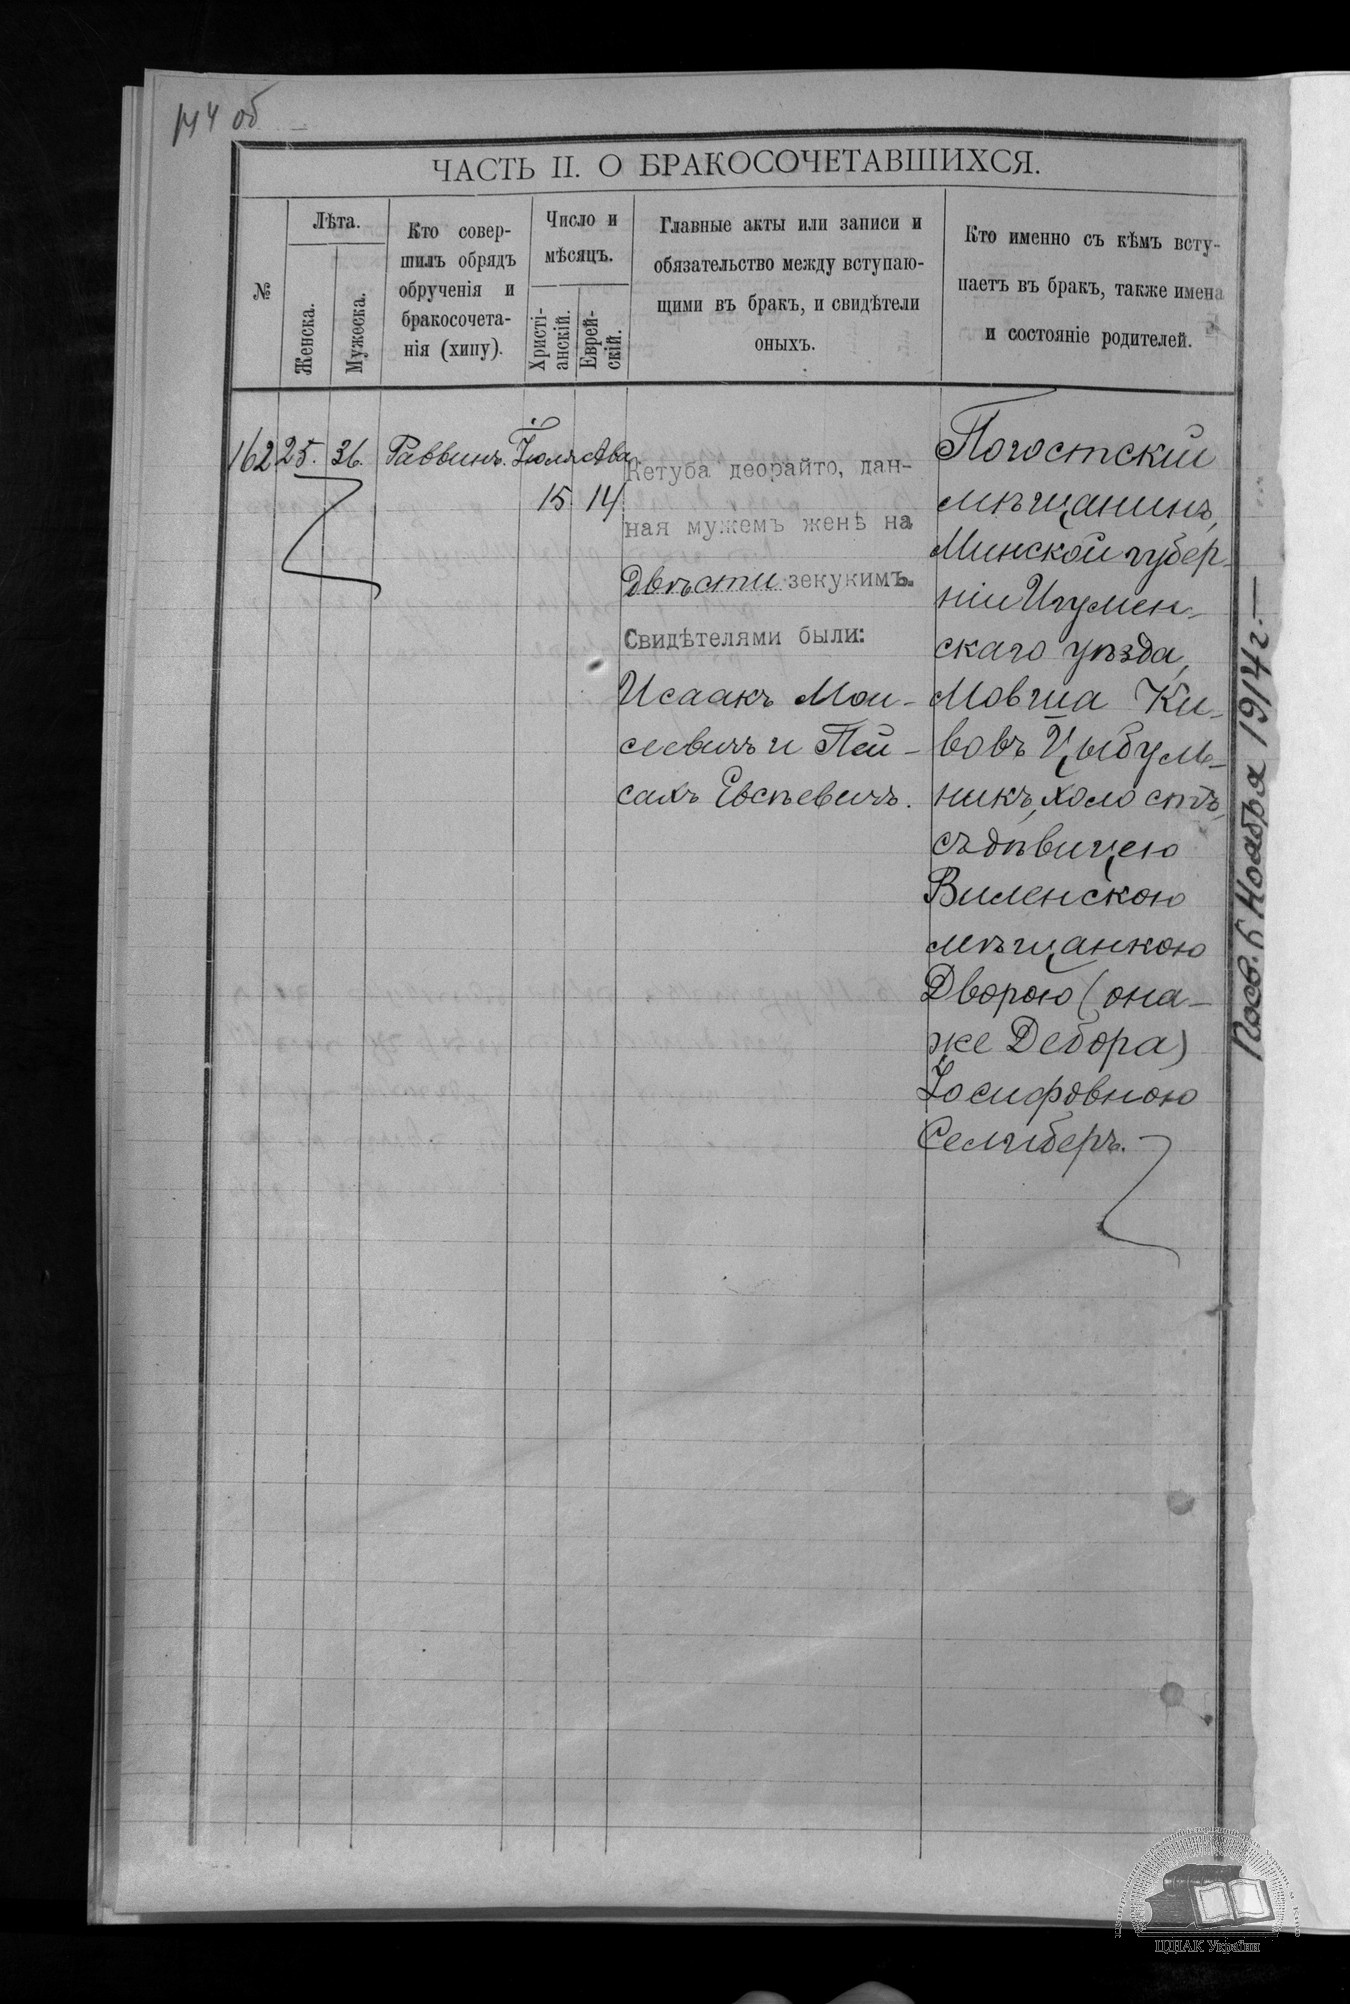 об
ЧАСТЬ II. О БРАКОСОЧЕТАВШИХСЯ.
№
Лѣта.
Женска.
Мужеска.
Кто совер-
шилъ обрядъ
обрученія и
бракосочета-
нія (хипу).
Число и
мѣсяцъ.
Христі-
анскій.
Еврей-
скій.
Главные акты или записи и
обязательство между вступаю-
щими въ бракъ, и свидѣтели
оныхъ.
Кто именно съ кѣмъ всту-
паетъ въ бракъ, также имена
и состояніе родителей.
162
25.
36.
Раввинъ.
Іюля
15.
Ава
14
Кетуба деорайто, дан-
ная мужемъ женѣ на
Двѣсти зекукимъ.
Свидѣтелями были:
Исаакъ Мои-
сеевичъ и Пей-
сахъ Евсѣевичъ.
Погостскій
мѣщанинъ,
Минской губер-
ніи Игумен-
скаго уѣзда,
Мовша Ки-
вовъ Цыбуль-
никъ, холостъ,
съ дѣвицею
Виленскою
мѣщанкою
Дворою (она-
же Дебора)
Іосифовною
Селиберъ.
6 Ноября 1914 г.—
ЦДІАК України